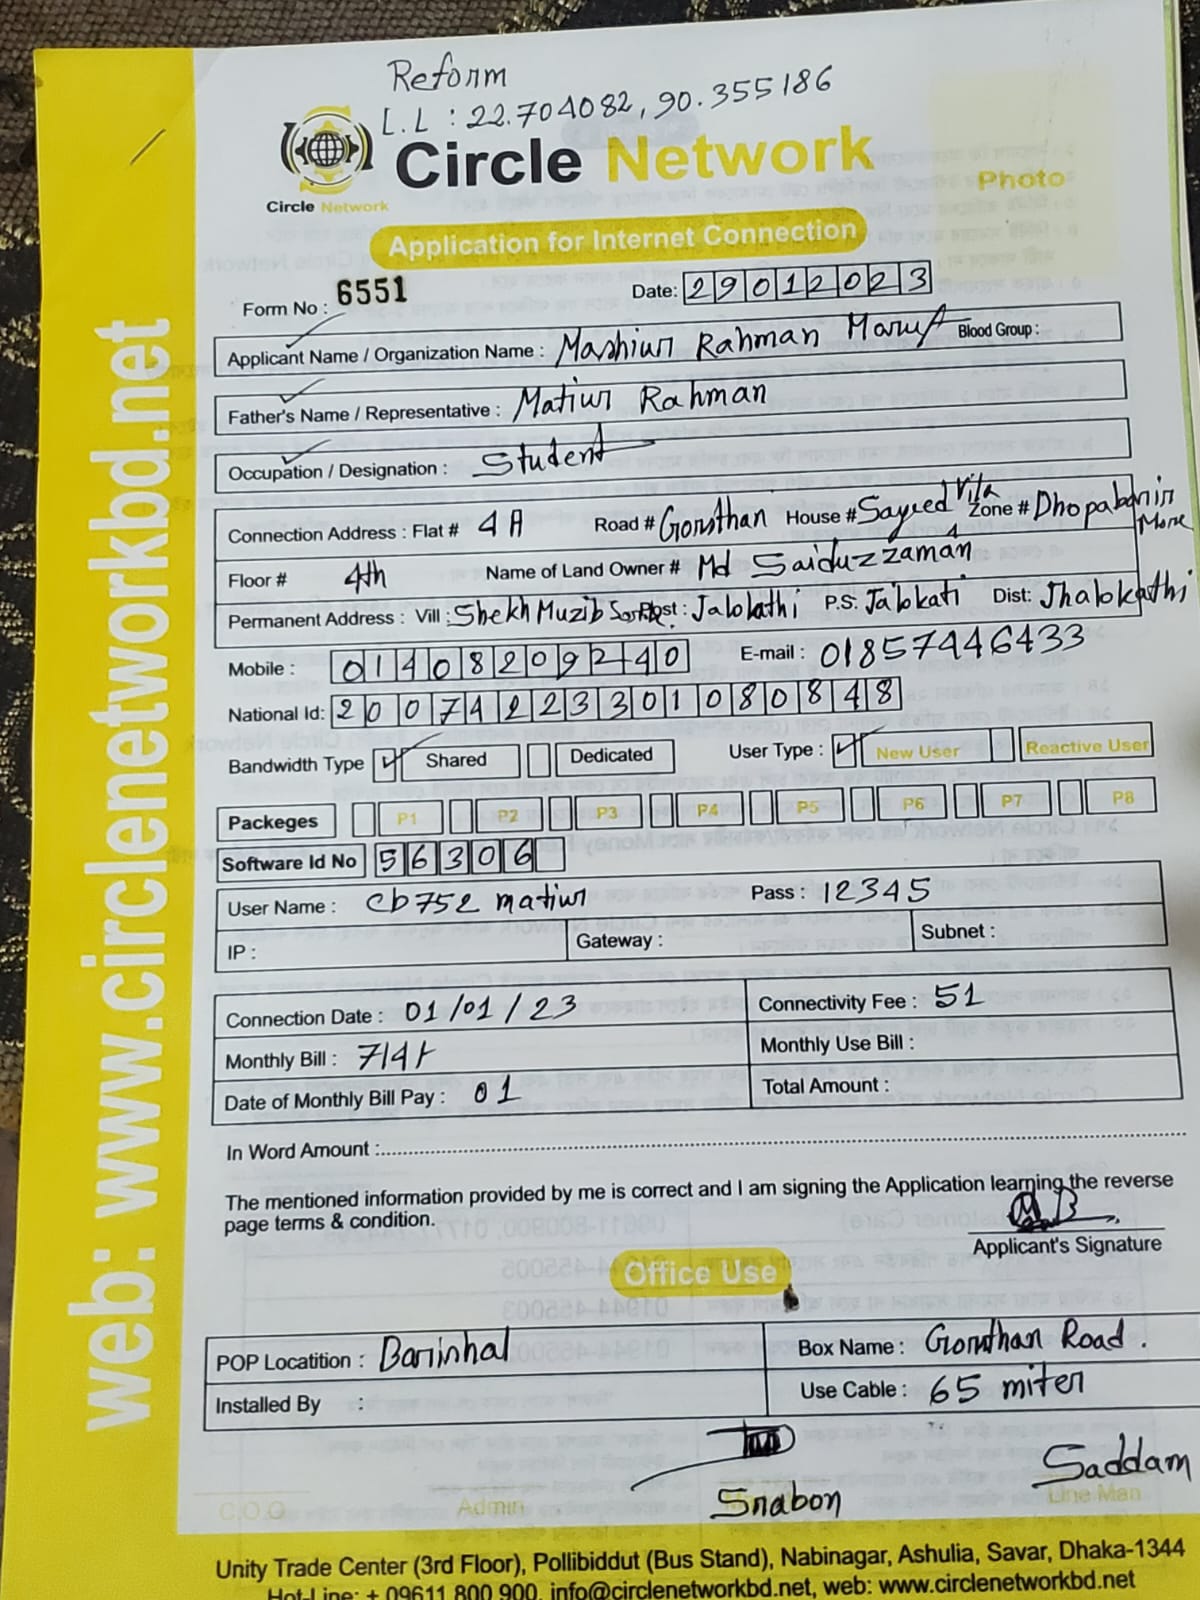 Reform
L.L : 22.704082, 90.355186
Circle Network
Circle Network
Photo
Application for Internet Connection
Form No : 6551 Date: 29012023
Applicant Name / Organization Name : Mashiur Rahman Maruf Blood Group :
Father's Name / Representative : Matiur Rahman
Occupation / Designation : Student
Connection Address : Flat # 4A Road # Gorosthan House # Sayeed Vila Zone # Dhopabarir More
Floor # 4th Name of Land Owner # Md Saiduzzaman
Permanent Address : Vill : Shekh Muzib Post : Jalokathi P.S: Jalokati Dist: Jhalokathi
Mobile : 01408209240 E-mail : 01857446433
National Id: 20074223301080848
Bandwidth Type Shared Dedicated User Type : New User Reactive User
Packeges P1 P2 P3 P4 P5 P6 P7 P8
Software Id No 56306
User Name : cb752 matiur Pass : 12345
IP : Gateway : Subnet :
Connection Date : 01/01/23 Connectivity Fee : 51
Monthly Bill : Monthly Use Bill :
Date of Monthly Bill Pay : 01 Total Amount :
In Word Amount :
The mentioned information provided by me is correct and I am signing the Application learning the reverse
page terms & condition.
Applicant's Signature
Office Use
POP Locatition : Barishal Box Name : Gorosthan Road.
Installed By : Use Cable : 65 miter
C.O.O Admin Srabon Saddam
Line Man
Unity Trade Center (3rd Floor), Pollibiddut (Bus Stand), Nabinagar, Ashulia, Savar, Dhaka-1344
Hot-Line: + 09611 800 900, info@circlenetworkbd.net, web: www.circlenetworkbd.net
web: www.circlenetworkbd.net